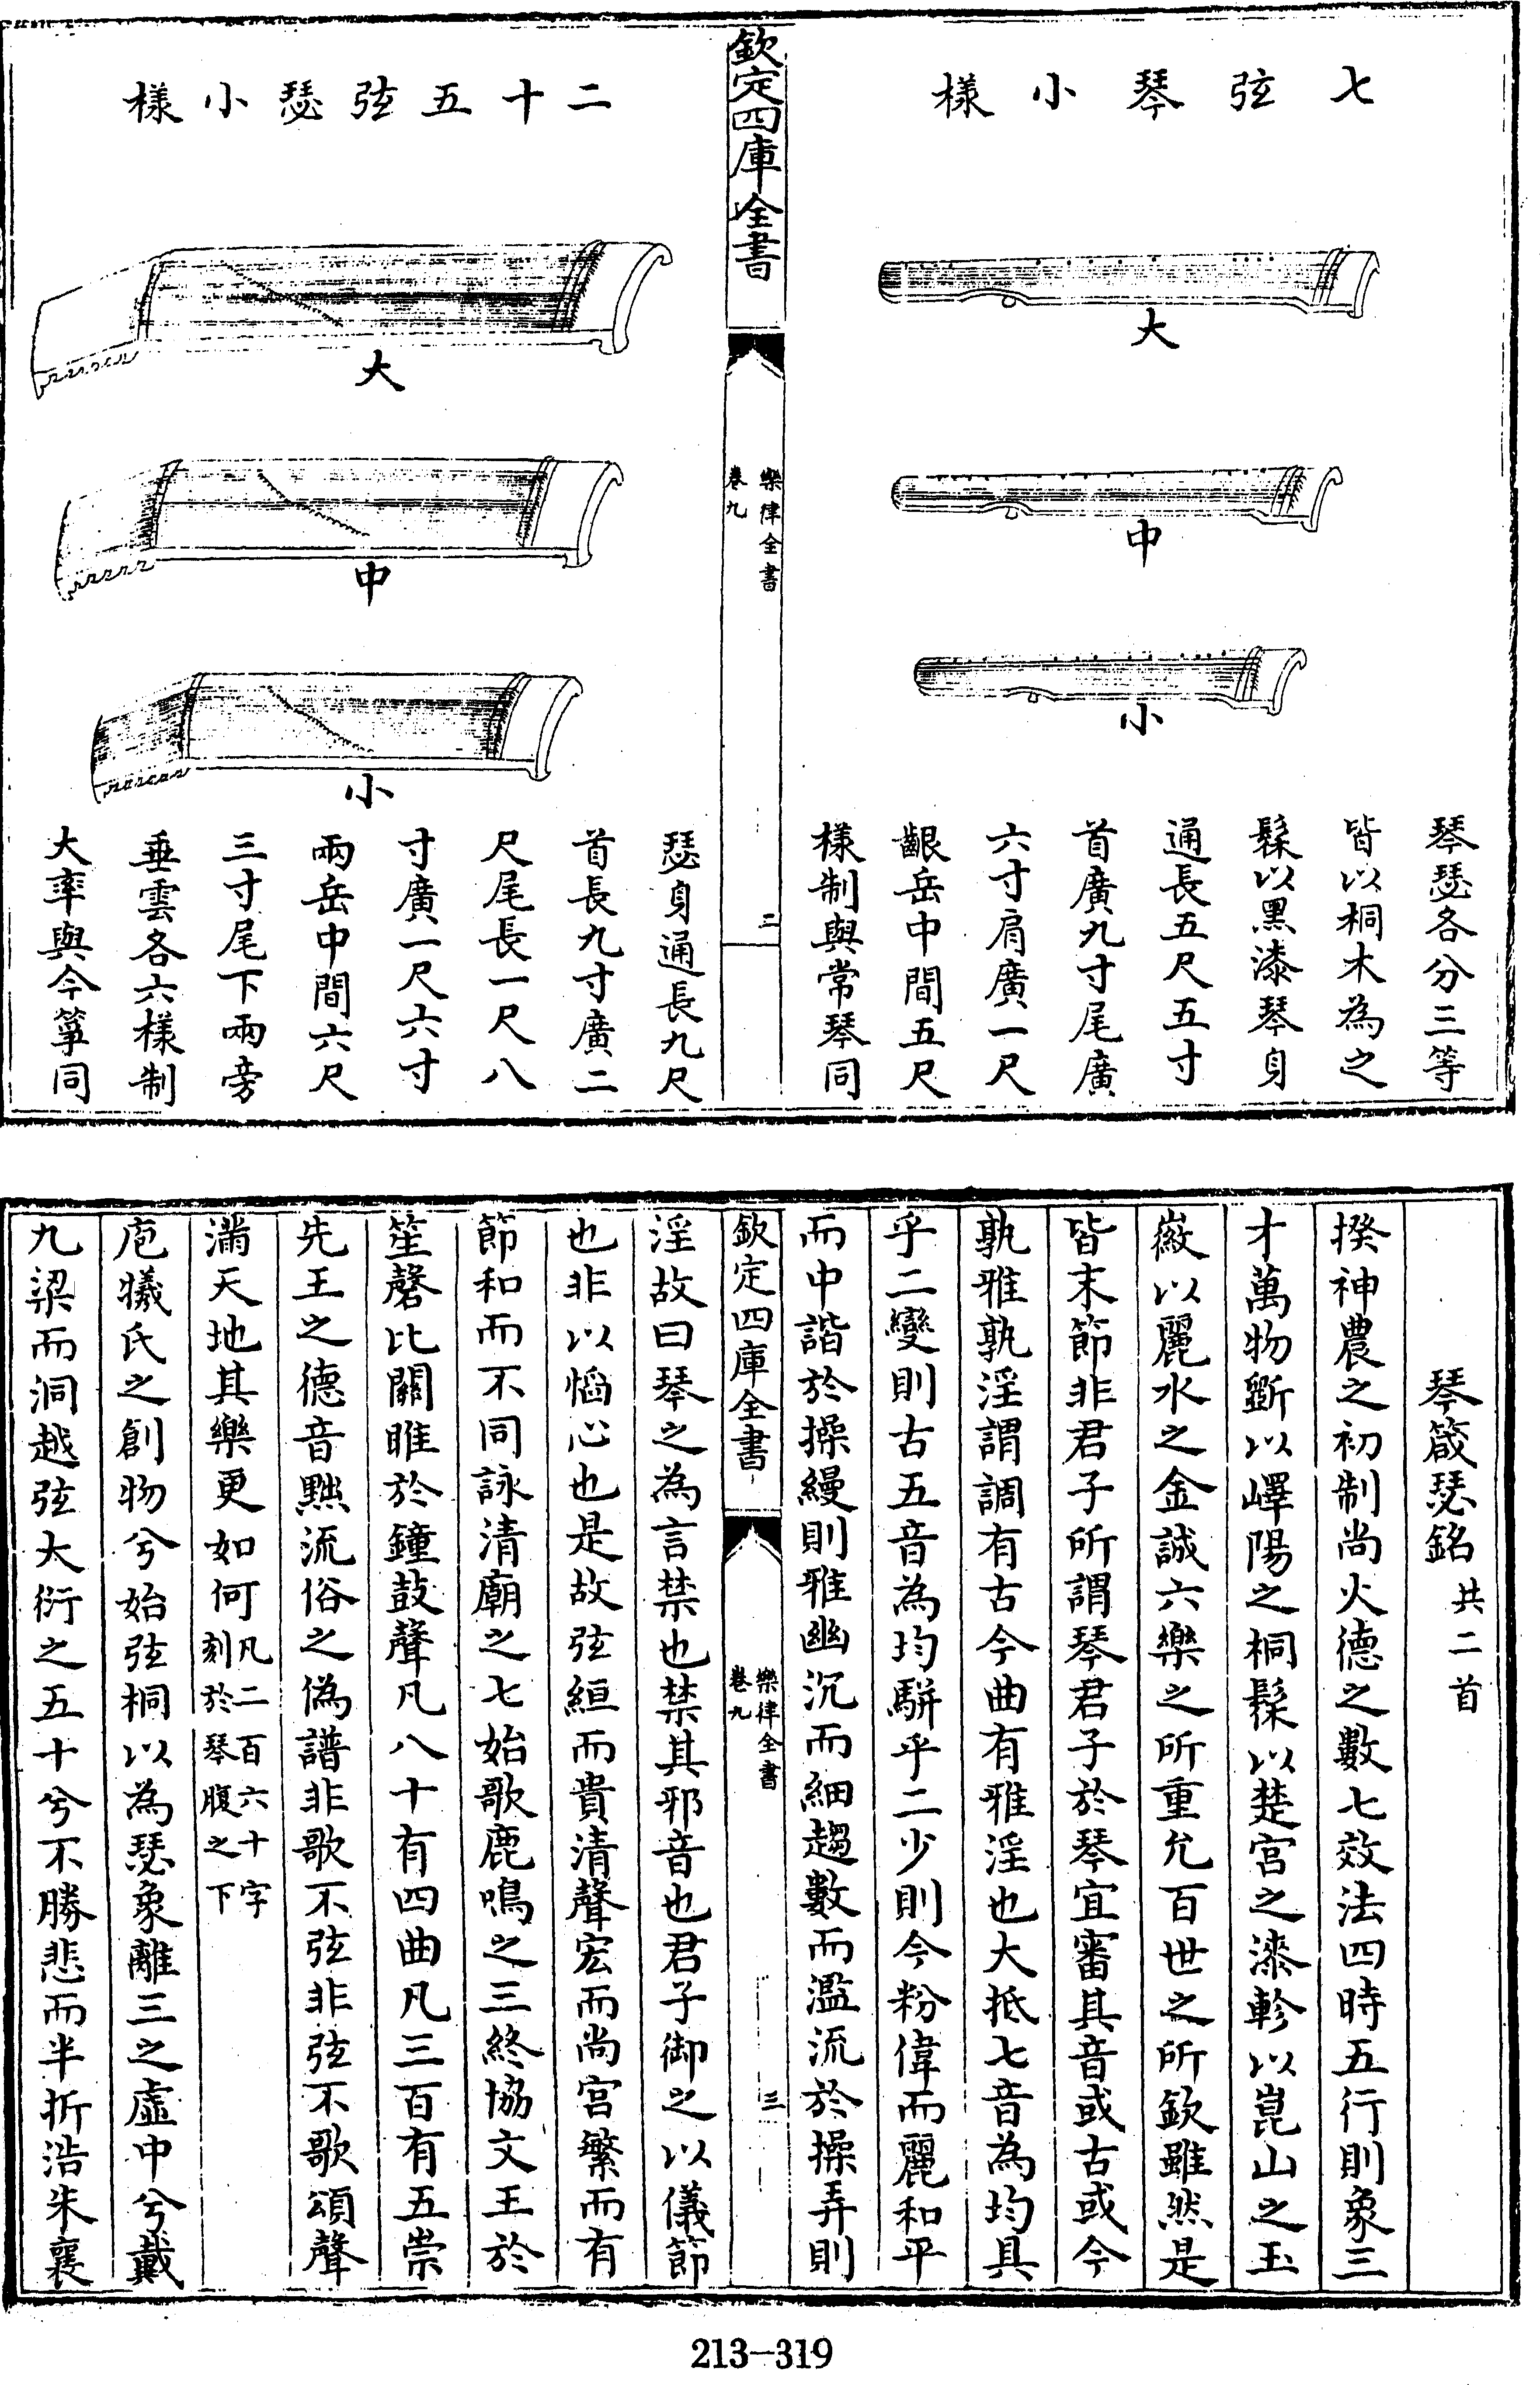 七弦琴小樣
大
中
小
琴瑟各分三等
皆以桐木為之
髹以黑漆琴身
通長五尺五寸
首廣九寸尾廣
六寸肩廣一尺
齦岳中間五尺
樣制與常琴同
欽定四庫全書
樂律全書
卷九
二
二十五弦瑟小樣
大
中
小
瑟身通長九尺
首長九寸廣二
尺尾長一尺八
寸廣一尺六寸
兩岳中間六尺
三寸尾下兩旁
垂雲各六樣制
大率與今箏同
琴箴瑟銘共二首
揆神農之初制尚火德之數七效法四時五行則象三
才萬物斲以嶧陽之桐髹以楚宮之漆軫以崑山之玉
徽以麗水之金誠六樂之所重允百世之所欽雖然是
皆末節非君子所謂琴君子於琴宜審其音或古或今
孰雅孰淫謂調有古今曲有雅淫也大抵七音為均具
乎二變則古五音為均駢乎二少則今粉偉而麗和平
而中諧於操縵則雅幽沉而細趨數而濫流於操弄則
欽定四庫全書
樂律全書
卷九
三
淫故曰琴之為言禁也禁其邪音也君子御之以儀節
也非以慆心也是故弦絙而貴清聲宏而尚宮繁而有
節和而不同詠清廟之七始歌鹿鳴之三終協文王於
笙磬比關雎於鐘鼓聲凡八十有四曲凡三百有五崇
先王之德音黜流俗之偽譜非歌不弦非弦不歌頌聲
滿天地其樂更如何凡二百六十字刻於琴腹之下
庖犧氏之創物兮始弦桐以為瑟象離三之虛中兮戴
九梁而洞越弦大衍之五十兮不勝悲而半折浩朱襄
213-319